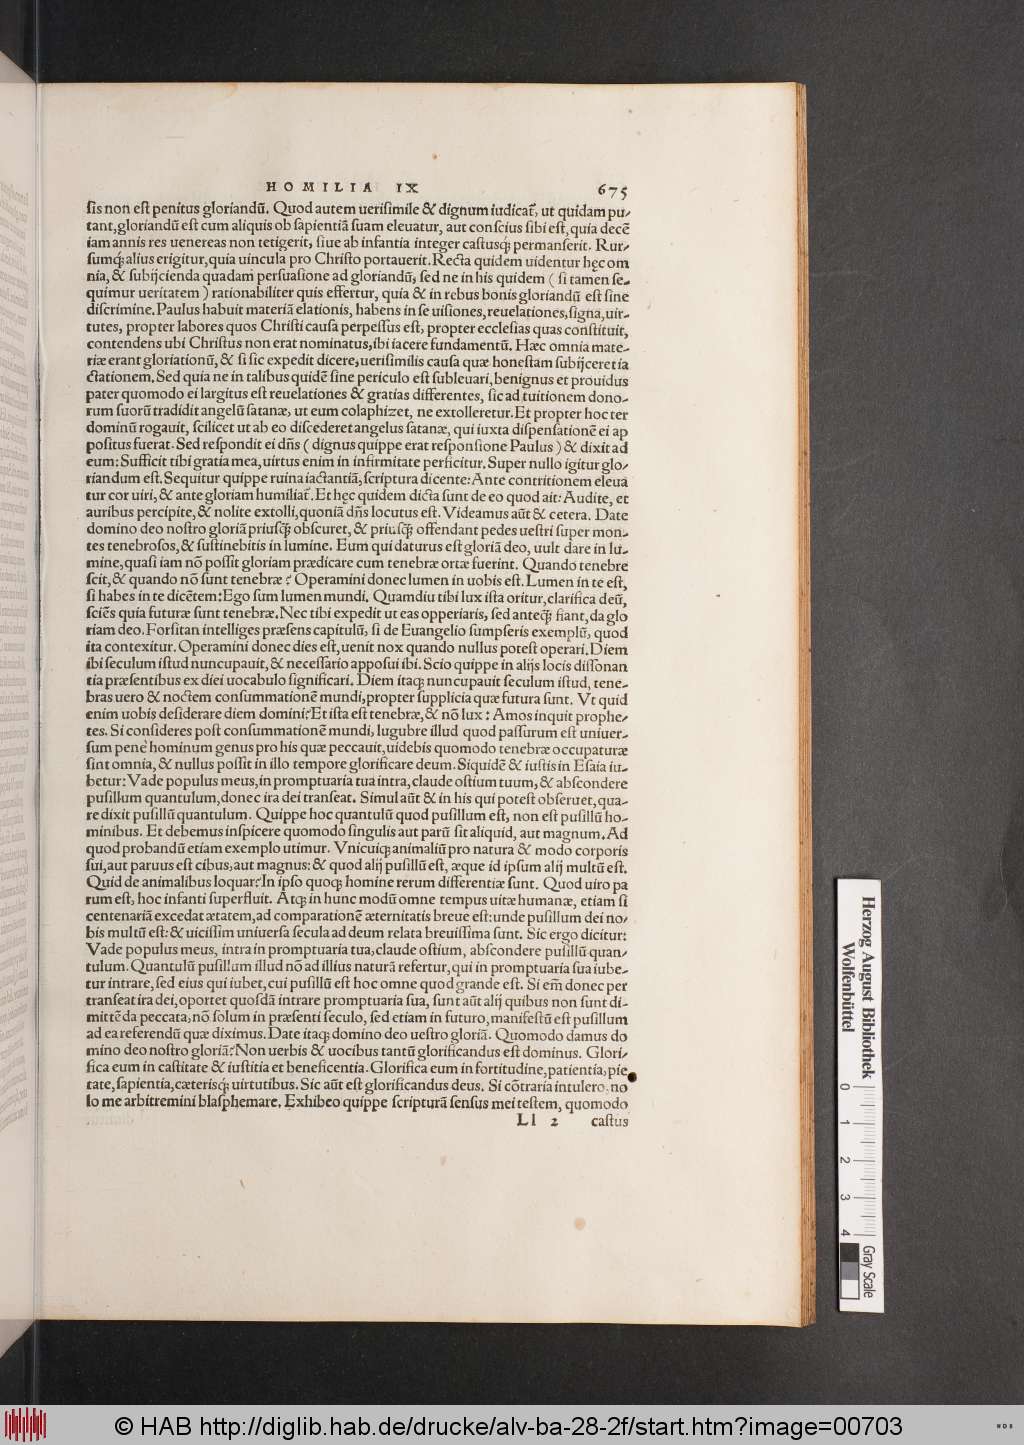 HOMILIA IX 675
ſis non eſt penitus gloriandũ. Quod autem ueriſimile & dignum iudicat̃, ut quidam pu-
tant, gloriandũ eſt cum aliquis ob ſapientiã ſuam eleuatur, aut conſcius ſibi eſt, quia decẽ
iam annis res uenereas non tetigerit, ſiue ab infantia integer caſtusq; permanſerit. Rur-
ſumq; alius erigitur, quia uincula pro Chriſto portauerit. Recta quidem uidentur hęc om
nia, & ſubijcienda quadam perſuaſione ad gloriandũ, ſed ne in his quidem ( ſi tamen ſe-
quimur ueritatem ) rationabiliter quis effertur, quia & in rebus bonis gloriandũ eſt ſine
diſcrimine. Paulus habuit materiã elationis, habens in ſe uiſiones, reuelationes, ſigna, uir-
tutes, propter labores quos Chriſti cauſa perpeſſus eſt, propter eccleſias quas conſtituit,
contendens ubi Chriſtus non erat nominatus, ibi iacere fundamentũ. Hæc omnia mate-
riæ erant gloriationũ, & ſi ſic expedit dicere, ueriſimilis cauſa quæ honeſtam ſubijceret ia
ctationem. Sed quia ne in talibus quidẽ ſine periculo eſt ſubleuari, benignus et prouidus
pater quomodo ei largitus eſt reuelationes & gratias differentes, ſic ad tuitionem dono-
rum ſuorũ tradidit angelũ ſatanæ, ut eum colaphizet, ne extolleretur. Et propter hoc ter
dominũ rogauit, ſcilicet ut ab eo diſcederet angelus ſatanæ, qui iuxta diſpenſationẽ ei ap
poſitus fuerat. Sed reſpondit ei dñs ( dignus quippe erat reſponſione Paulus ) & dixit ad
eum: Sufficit tibi gratia mea, uirtus enim in infirmitate perficitur. Super nullo igitur glo-
riandum eſt. Sequitur quippe ruina iactantiã, ſcriptura dicente: Ante contritionem eleua
tur cor uiri, & ante gloriam humiliat̃. Et hęc quidem dicta ſunt de eo quod ait: Audite, et
auribus percipite, & nolite extolli, quoniã dñs locutus eſt. Videamus aũt & cetera. Date
domino deo noſtro gloriã priuſq̃; obſcuret, & priuſq̃; offendant pedes ueſtri ſuper mon-
tes tenebroſos, & ſuſtinebitis in lumine. Eum qui daturus eſt gloriã deo, uult dare in lu-
mine, quaſi iam nõ poſſit gloriam prædicare cum tenebræ ortæ fuerint. Quando tenebre
ſcit, & quando nõ ſunt tenebræ? Operamini donec lumen in uobis eſt. Lumen in te eſt,
ſi habes in te dicẽtem: Ego ſum lumen mundi. Quamdiu tibi lux iſta oritur, clarifica deũ,
ſciẽs quia futuræ ſunt tenebræ. Nec tibi expedit ut eas opperiaris, ſed anteq̃; fiant, da glo
riam deo. Forſitan intelliges præſens capitulũ, ſi de Euangelio ſumpſeris exemplũ, quod
ita contexitur. Operamini donec dies eſt, uenit nox quando nullus poteſt operari. Diem
ibi ſeculum iſtud nuncupauit, & neceſſario appoſui ibi. Scio quippe in alijs locis diſſonan
tia præſentibus ex diei uocabulo ſignificari. Diem itaq; nuncupauit ſeculum iſtud, tene-
bras uero & noctem conſummationẽ mundi, propter ſupplicia quæ futura ſunt. Vt quid
enim uobis deſiderare diem domini? Et iſta eſt tenebræ, & nõ lux: Amos inquit prophe-
tes. Si conſideres poſt conſummationẽ mundi, lugubre illud quod paſſurum eſt uniuer-
ſum penè hominum genus pro his quæ peccauit, uidebis quomodo tenebræ occupaturæ
ſint omnia, & nullus poſſit in illo tempore glorificare deum. Siquidẽ & iuſtis in Eſaia iu-
betur: Vade populus meus, in promptuaria tua intra, claude oſtium tuum, & abſcondere
puſillum quantulum, donec ira dei tranſeat. Simul aũt & in his qui poteſt obſeruet, qua-
re dixit puſillũ quantulum. Quippe hoc quantulũ quod puſillum eſt, non eſt puſillũ ho-
minibus. Et debemus inſpicere quomodo ſingulis aut parũ ſit aliquid, aut magnum. Ad
quod probandũ etiam exemplo utimur. Vnicuiq; animaliũ pro natura & modo corporis
ſui, aut paruus eſt cibus, aut magnus: & quod alij puſillũ eſt, æque id ipſum alij multũ eſt.
Quid de animalibus loquar? In ipſo quoq; homine rerum differentiæ ſunt. Quod uiro pa
rum eſt, hoc infanti ſuperfluit. Atq; in hunc modũ omne tempus uitæ humanæ, etiam ſi
centenariã excedat ætatem, ad comparationẽ æternitatis breue eſt: unde puſillum dei no-
bis multũ eſt: & uiciſſim uniuerſa ſecula ad deum relata breuiſſima ſunt. Sic ergo dicitur:
Vade populus meus, intra in promptuaria tua, claude oſtium, abſcondere puſillũ quan-
tulum. Quantulũ puſillum illud nõ ad illius naturã refertur, qui in promptuaria ſua iube-
tur intrare, ſed eius qui iubet, cui puſillũ eſt hoc omne quod grande eſt. Si em̃ donec per
tranſeat ira dei, oportet quoſdã intrare promptuaria ſua, ſunt aũt alij quibus non ſunt di-
mittẽda peccata, nõ ſolum in præſenti ſeculo, ſed etiam in futuro, manifeſtũ eſt puſillum
ad ea referendũ quæ diximus. Date itaq; domino deo ueſtro gloriã. Quomodo damus do
mino deo noſtro gloriã? Non uerbis & uocibus tantũ glorificandus eſt dominus. Glori-
fica eum in caſtitate & iuſtitia et beneficentia. Glorifica eum in fortitudine, patientia, pie
tate, ſapientia, cæterisq; uirtutibus. Sic aũt eſt glorificandus deus. Si cõtraria intulero, no
lo me arbitremini blaſphemare. Exhibeo quippe ſcripturã ſenſus mei teſtem, quomodo
Ll 2 caſtus
Herzog August Bibliothek
Wolfenbüttel
0 1 2 3 4
Gray Scale
© HAB http://diglib.hab.de/drucke/alv-ba-28-2f/start.htm?image=00703